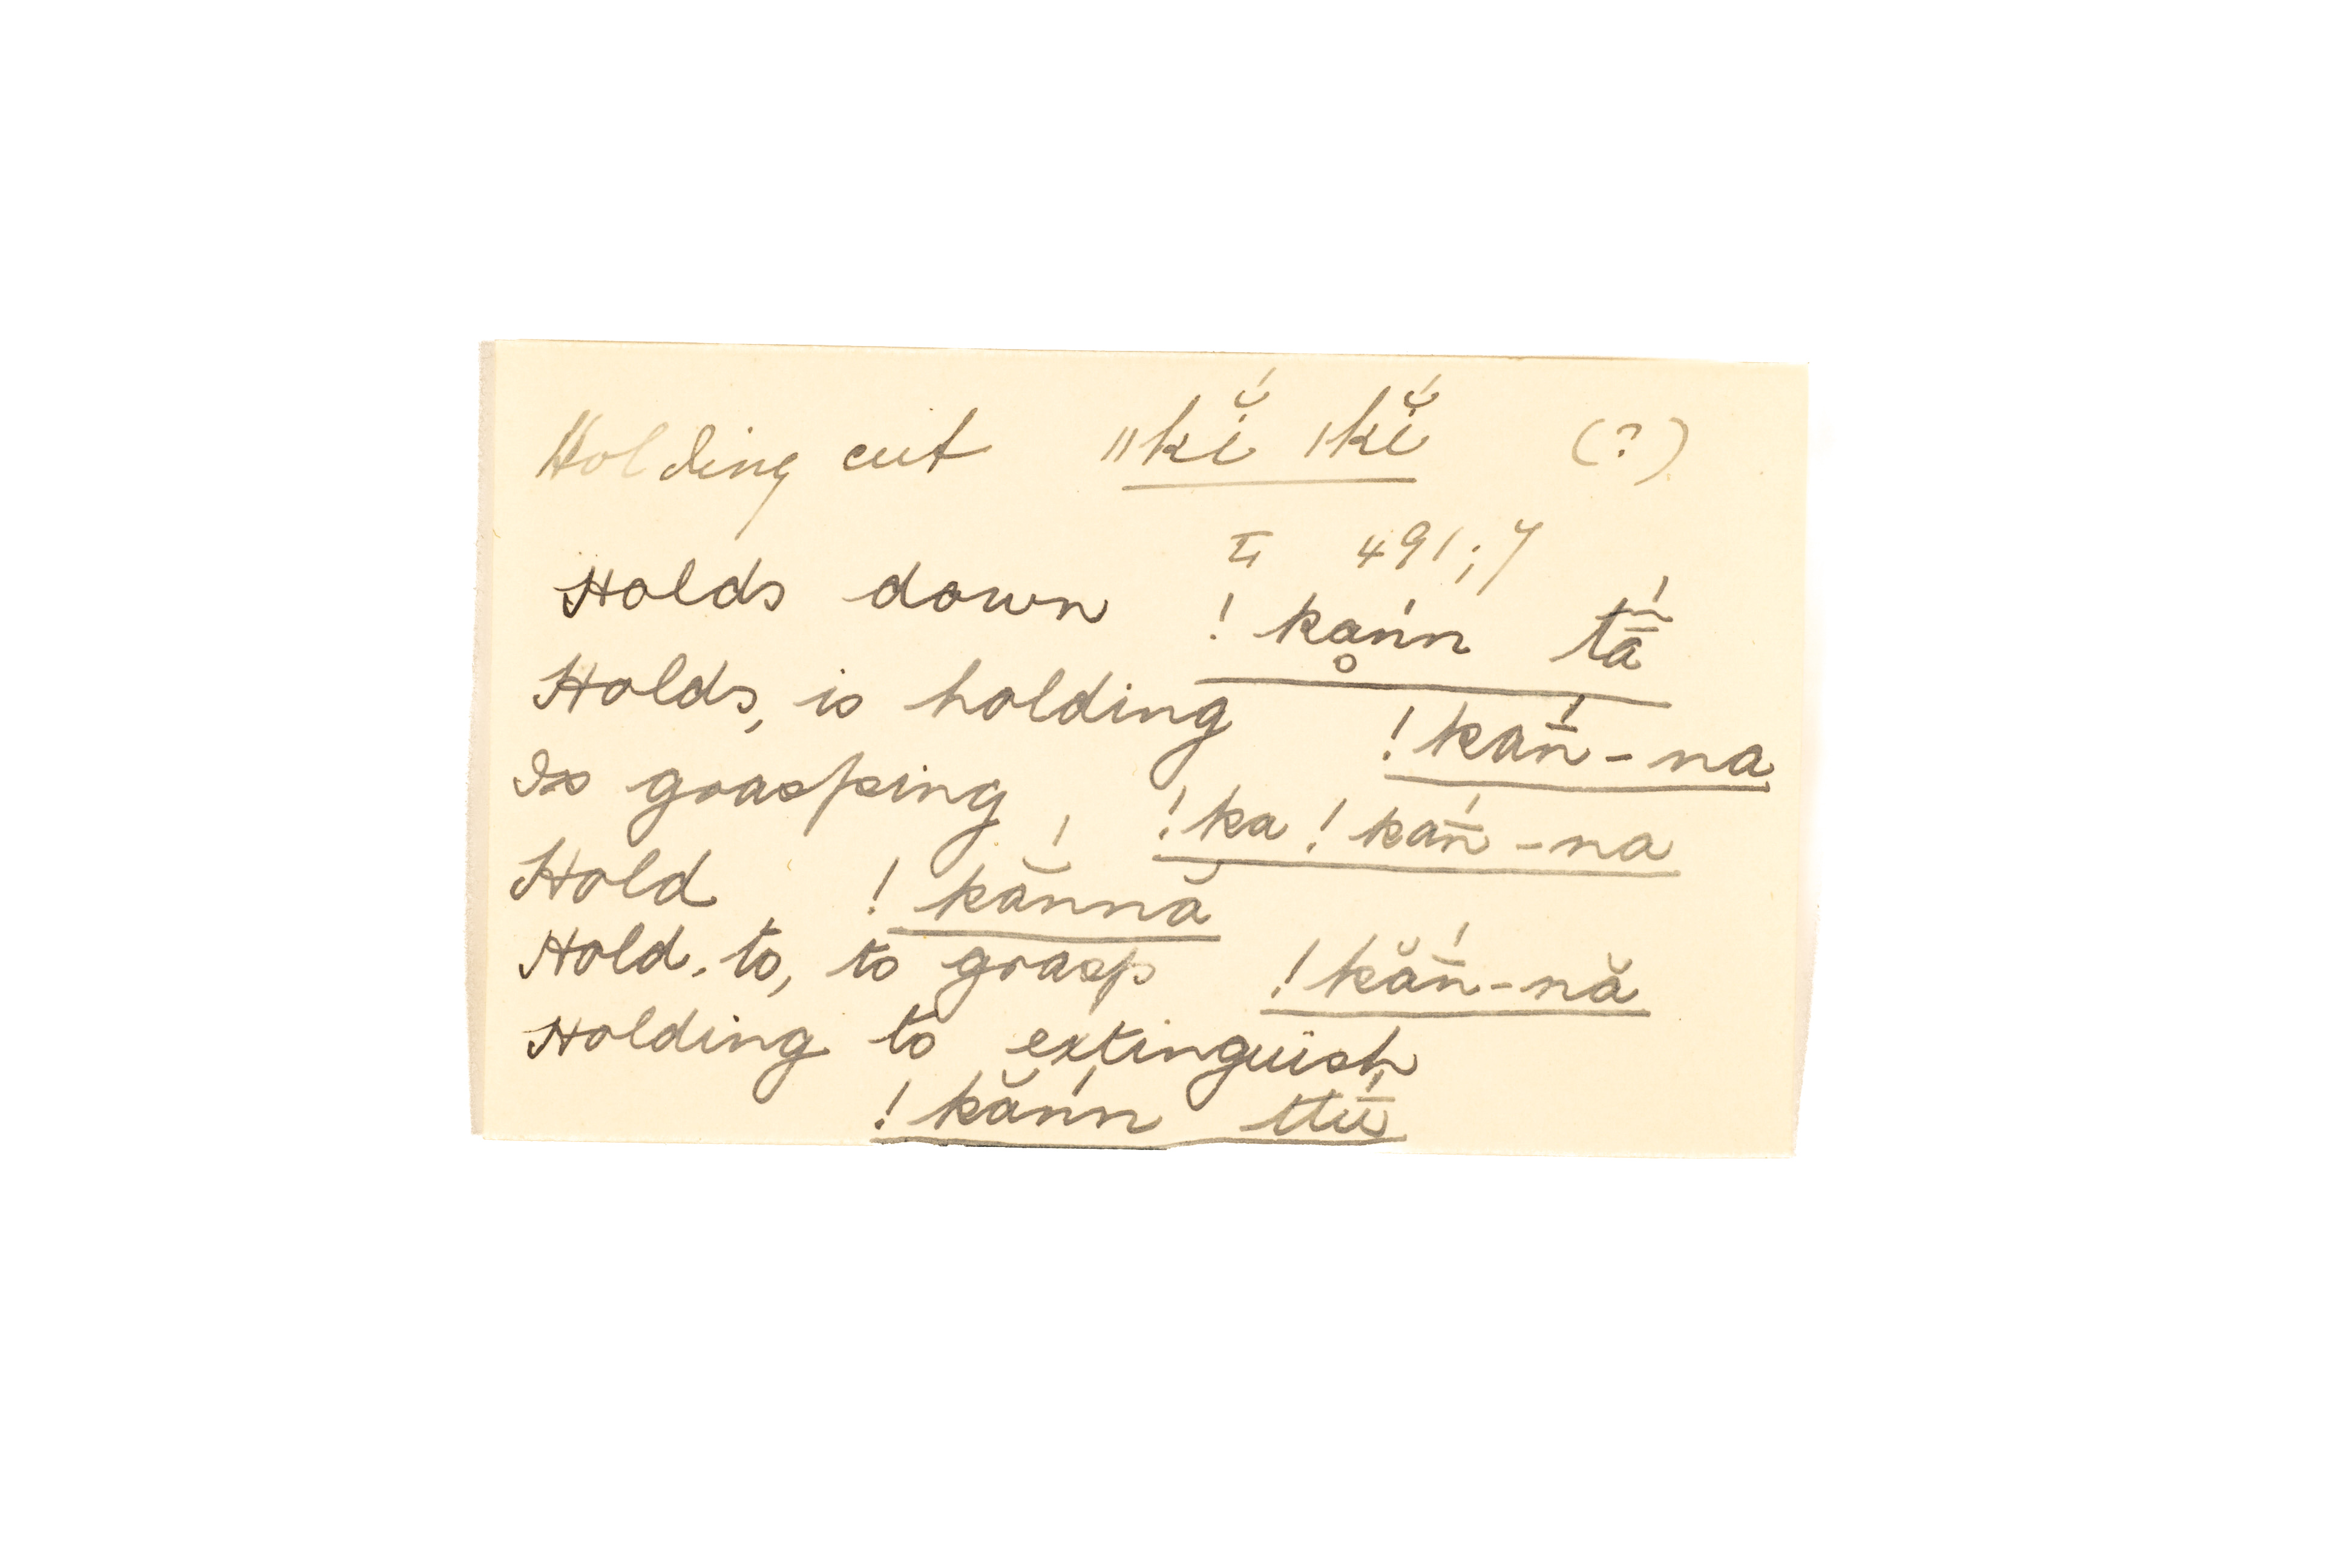 Holding cut ǁkĭ́ ǀkĭ́ (?)
II 491;7
Holds down !kḁńn tā̃́
Holds, is holding !kan̄́-na
Is grasping, !ka!kan̄́-na
Hold !kắnnă
Hold, to, to grasp !kăn̄́-nă
Holding to extinguish
!kăńn ttū́